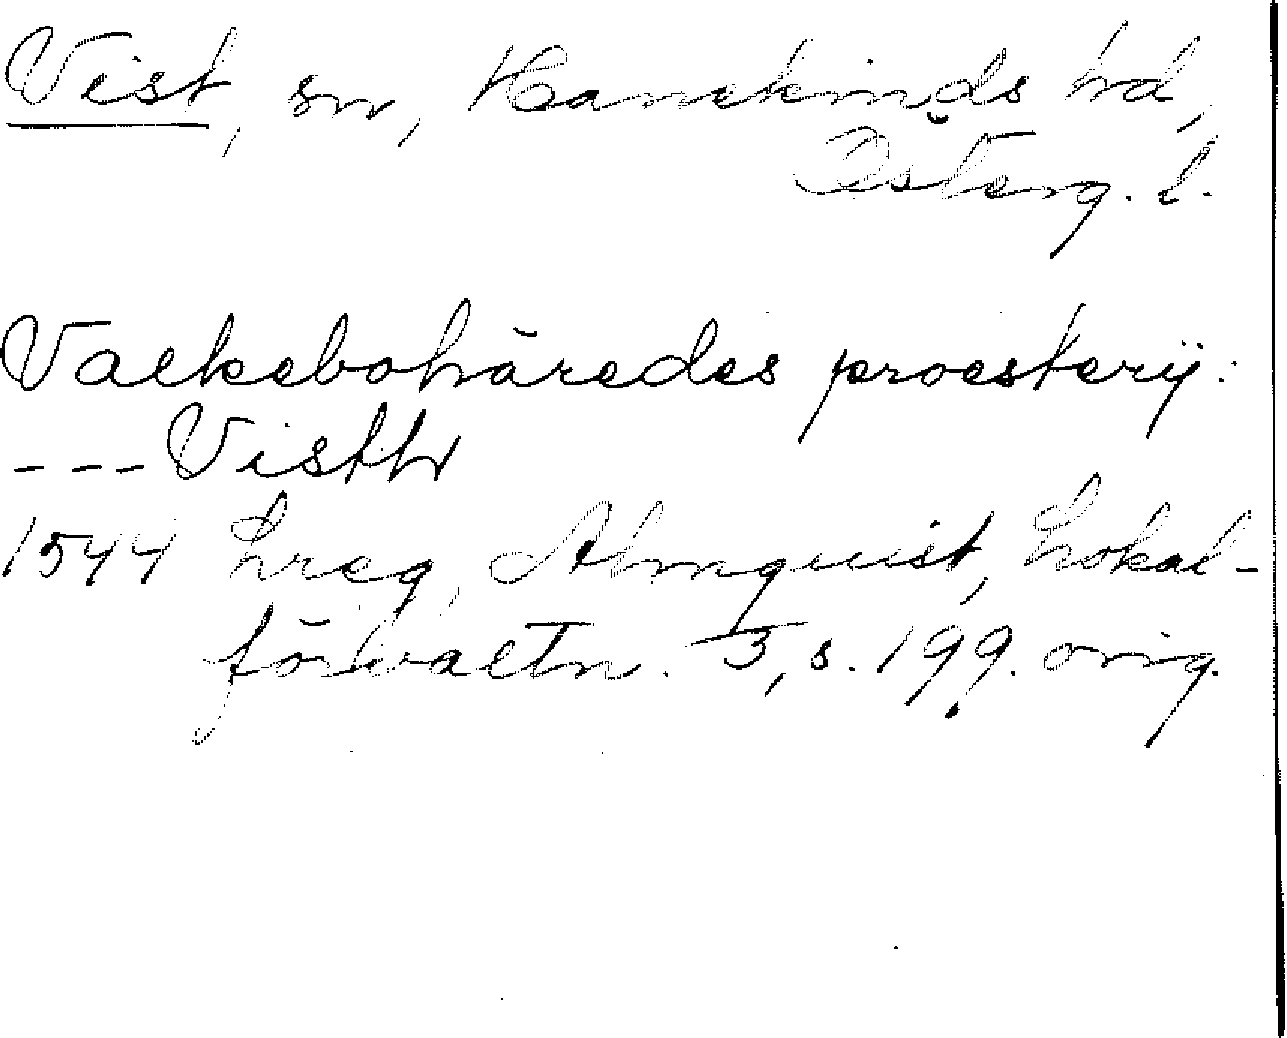 Vist, sn, Hanekinds hd,
Österg. l.
Valkebohäredes proesterij:
--- Visth
1544 Lreg, Almquist, Lokal-
förvaltn. 3, s. 199. orig.